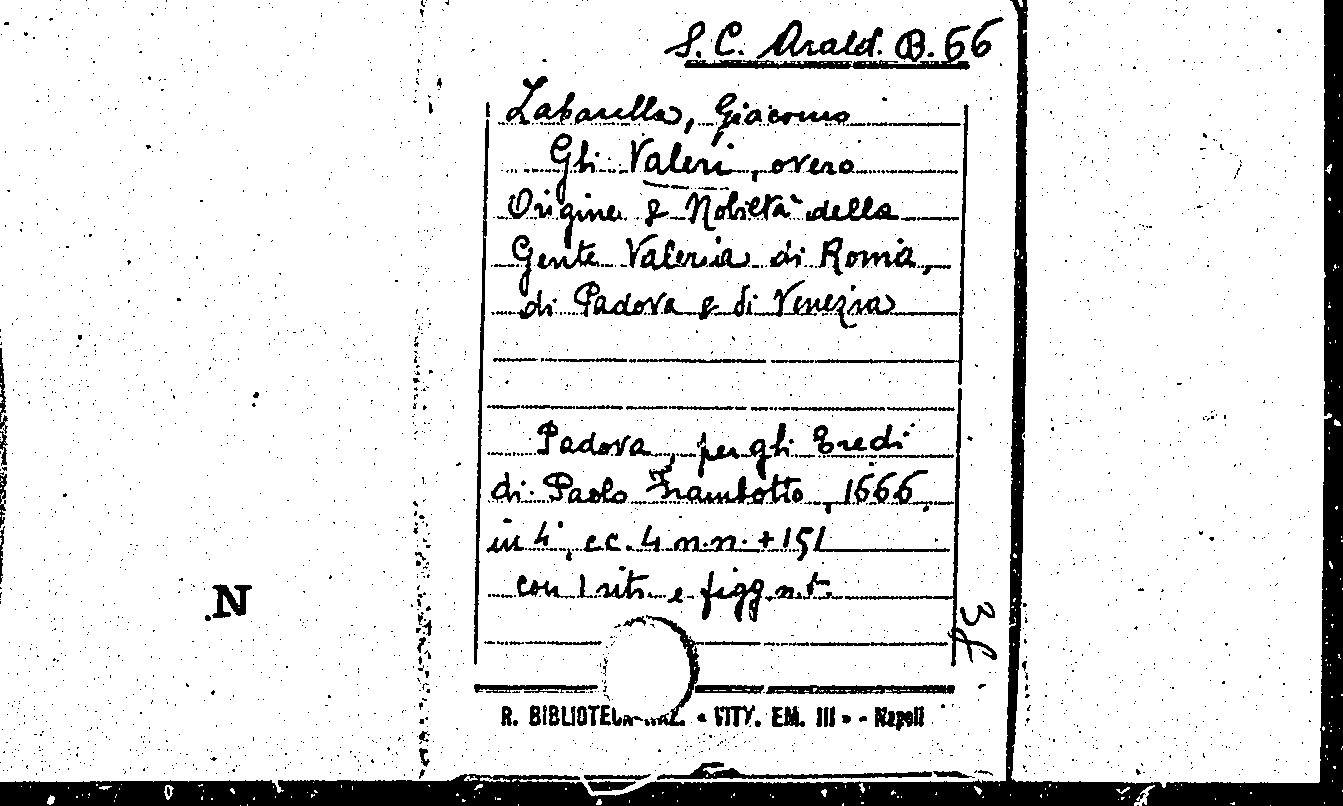 S. C. Arald. B. 66
Zabarella, Giacomo
Gli Valeri, overo
Origine & Nobiltà della
Gente Valeria di Roma,
di Padova & di Venezia
Padova, per gli Eredi
di Paolo Frambotto, 1666,
in 4°, cc. 4 n.n. + 151
con 1 ritr. e figg. n.t.
N
R. BIBLIOTECA NAZ. « VITT. EM. III » - Napoli